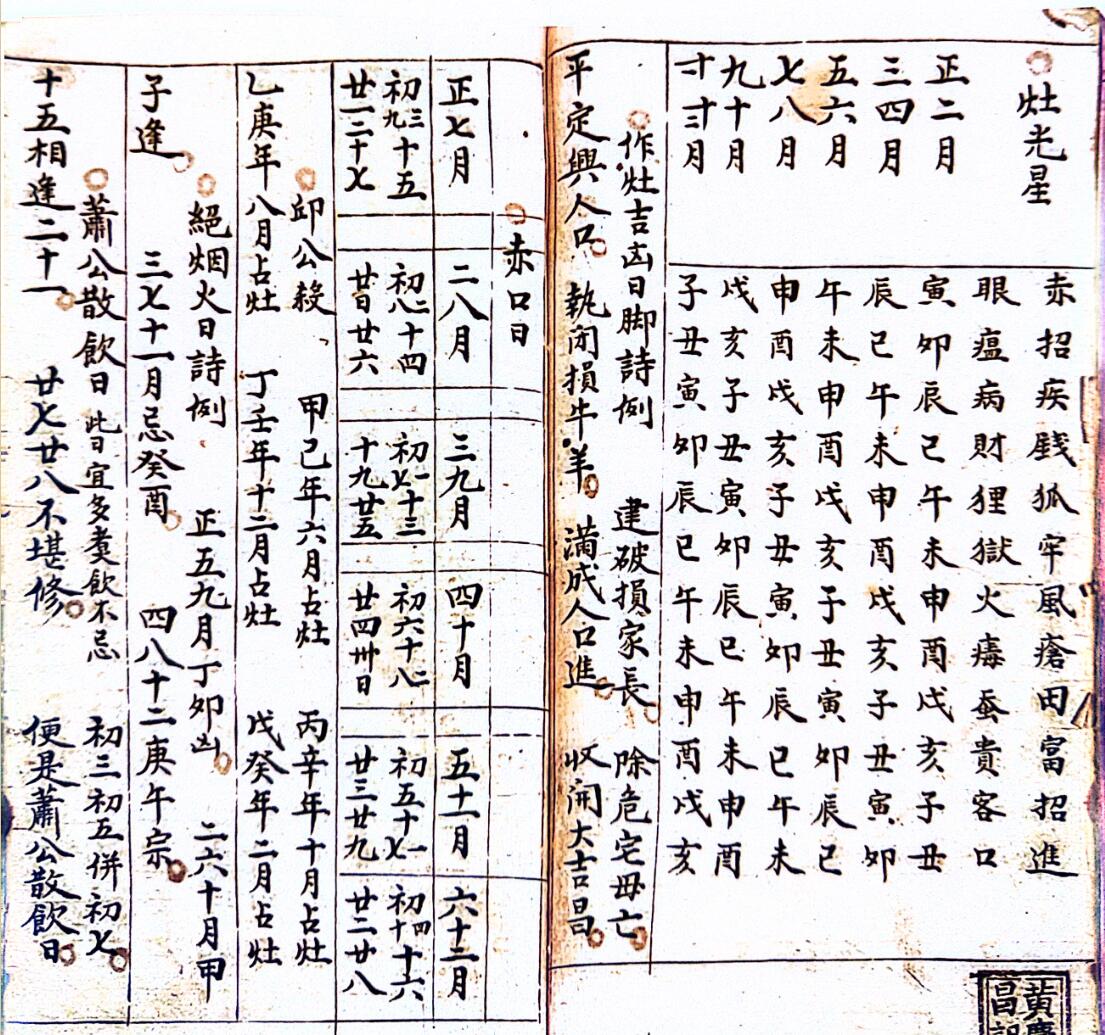 灶光星
赤招疾賤狐牢風瘡田富招進
眼瘟病財狸獄火毒蚕貴客口
正二月 寅卯辰巳午未申酉戌亥子丑
三四月 辰巳午未申酉戌亥子丑寅卯
五六月 午未申酉戌亥子丑寅卯辰巳
七八月 申酉戌亥子丑寅卯辰巳午未
九十月 戌亥子丑寅卯辰巳午未申酉
十一十二月 子丑寅卯辰巳午未申酉戌亥
作灶吉凶日脚詩例 建破損家長 除危宅毋亡
平定興人口 執閉損牛羊 滿成人口進 收開大吉昌
赤口日
正七月 二八月 三九月 四十月 五十一月 六十二月
初三九十五 初二八十四 初一七十三 初六十二十八 初五十一十七 初四十十六
廿一二十七 廿日廿六 十九廿五 廿四卅日 廿三廿九 廿二廿八
邱公殺 甲己年六月占灶 丙辛年十月占灶
乙庚年八月占灶 丁壬年十二月占灶 戊癸年二月占灶
絕烟火日詩例 正五九月丁卯凶 二六十月甲
子逢 三七十一月忌癸酉 四八十二庚午宗
蕭公散飲日 此日宜多煑飲不忌 初三初五併初七
十五相逢二十一 廿七廿八不堪修 便是蕭公散飲日
黃
昌